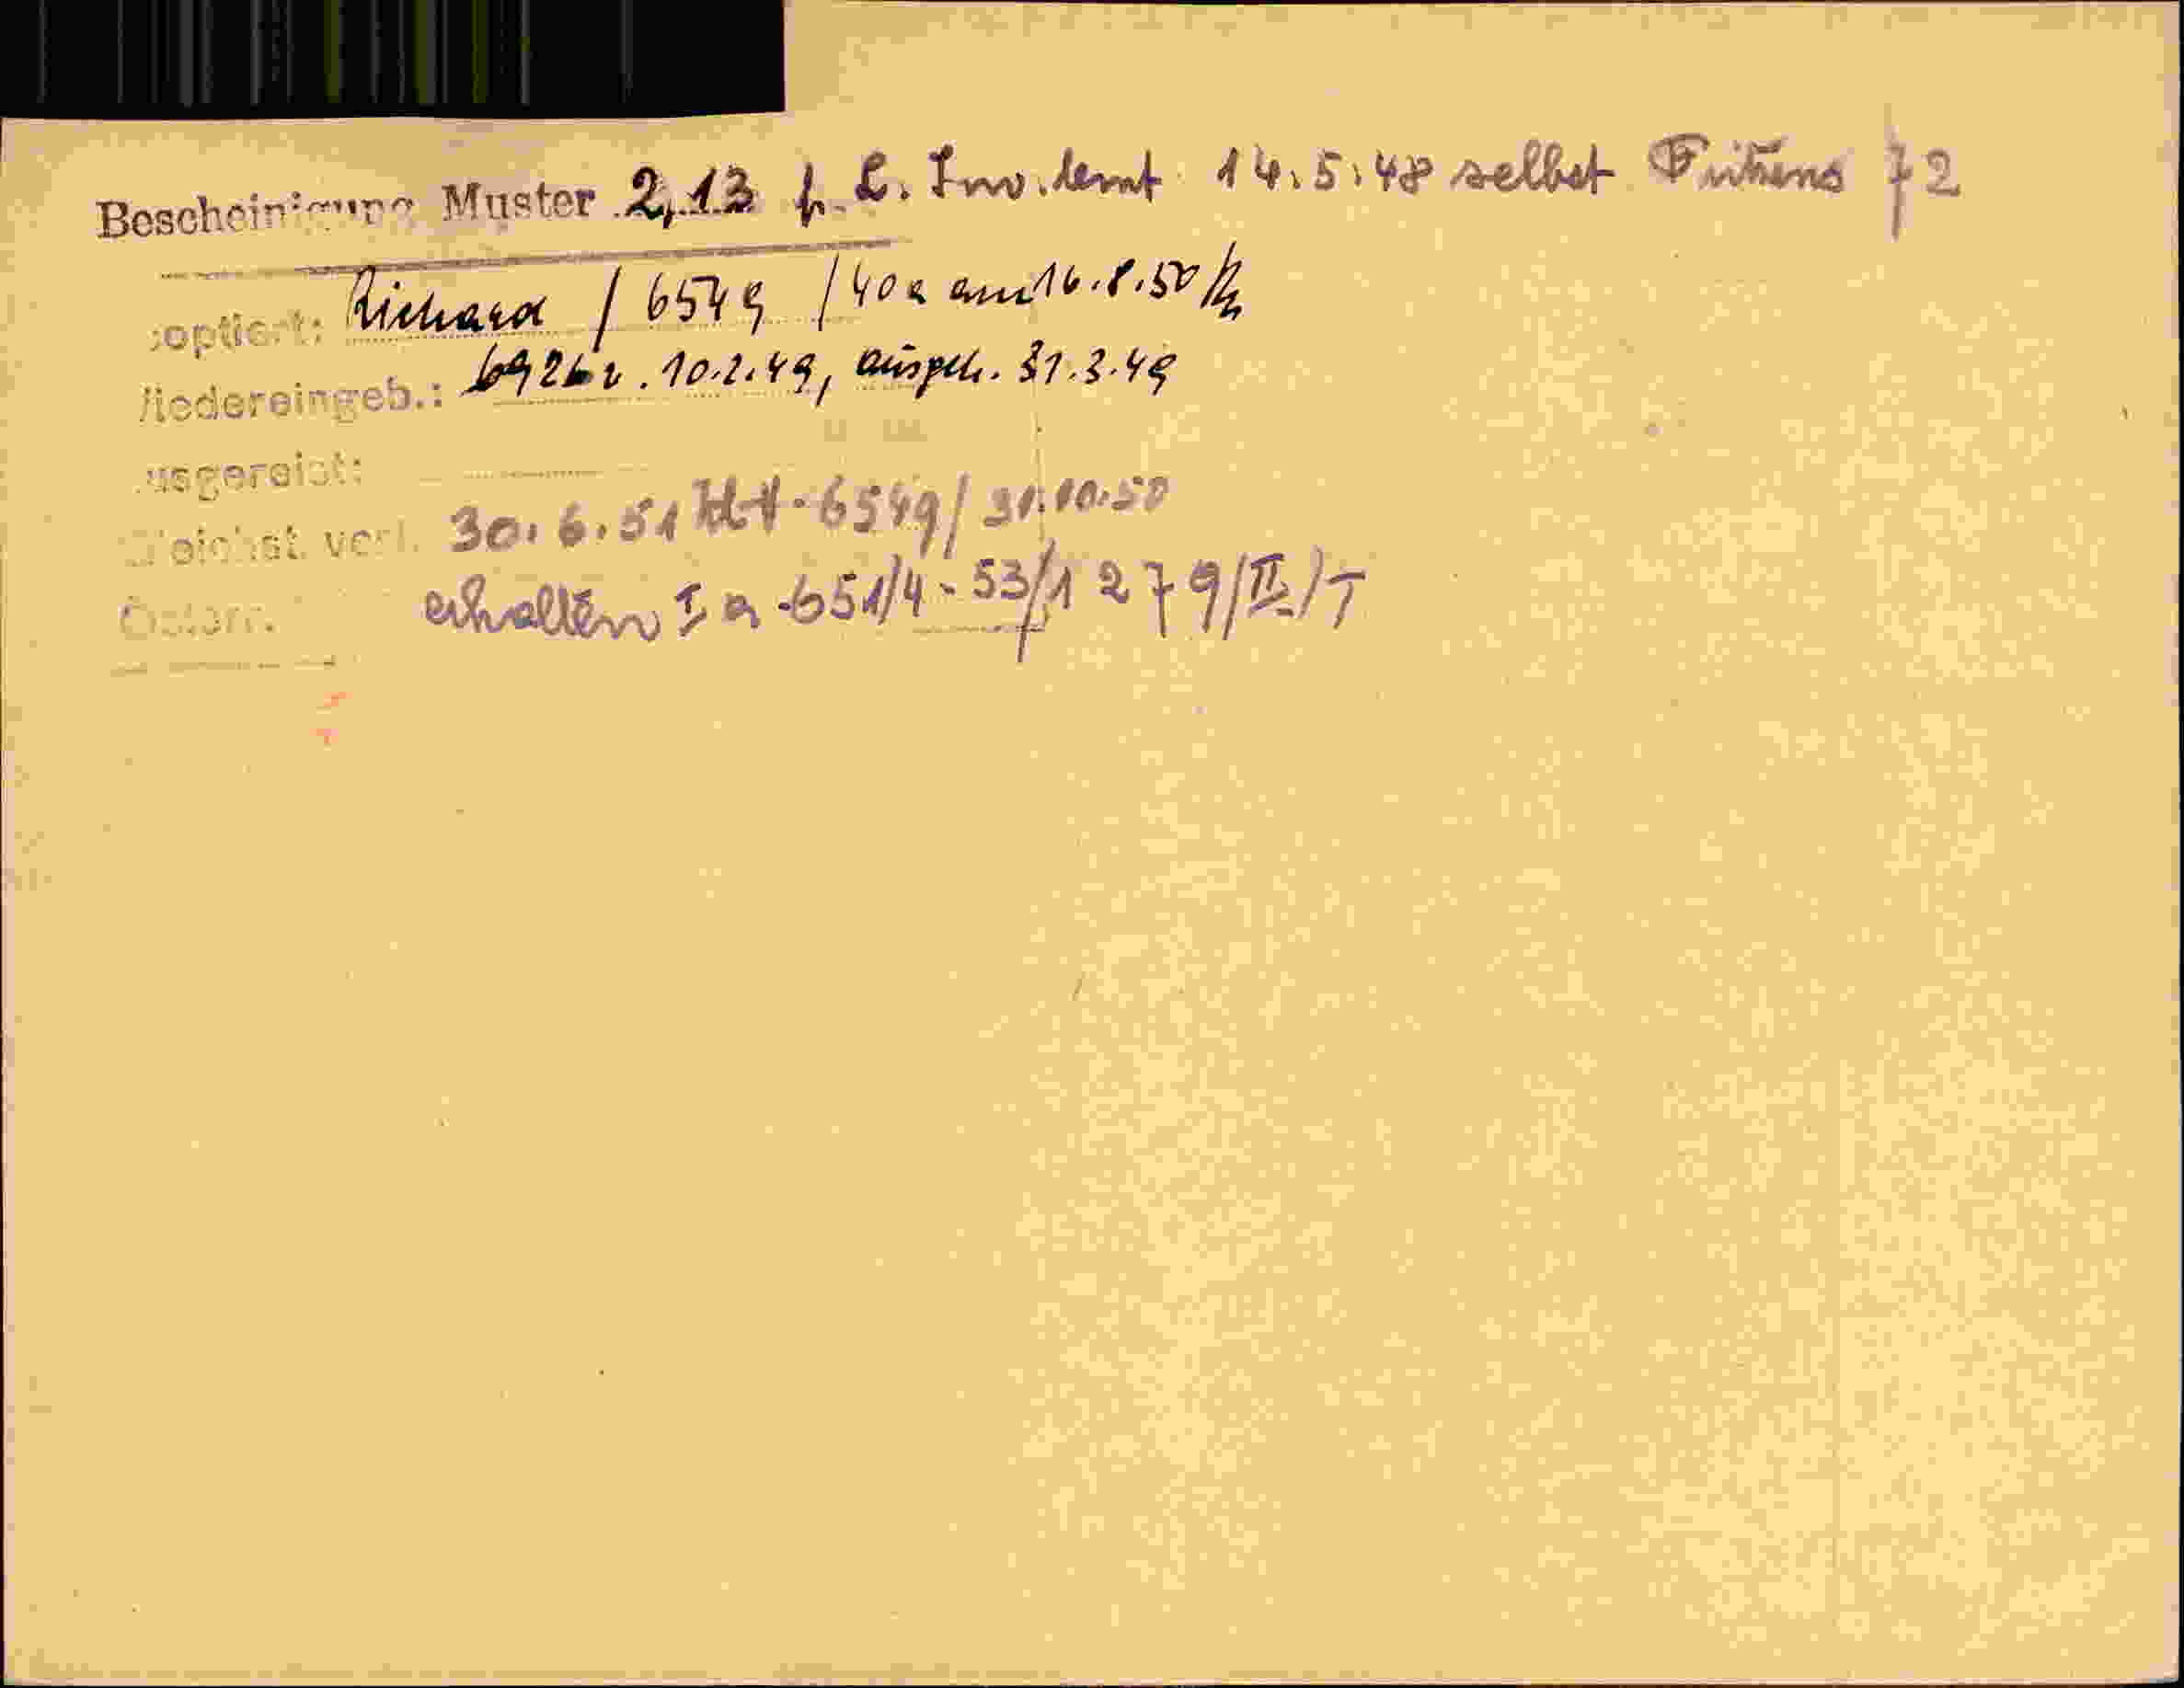 Bescheinigung Muster 2,13 f. L. Inv. Amt 14.5.48 selbst Fritzens 72
optiert: Richard / 6549 / 40a am 16.8.50
iedereingeb.: 6926 v. 10.2.49, ausgeh. 31.3.49
usgereist:
leichst. verl. 30.6.51 6549/ 31.10.50
Österr. erhalten Ia-651/4-53/1279/II/T